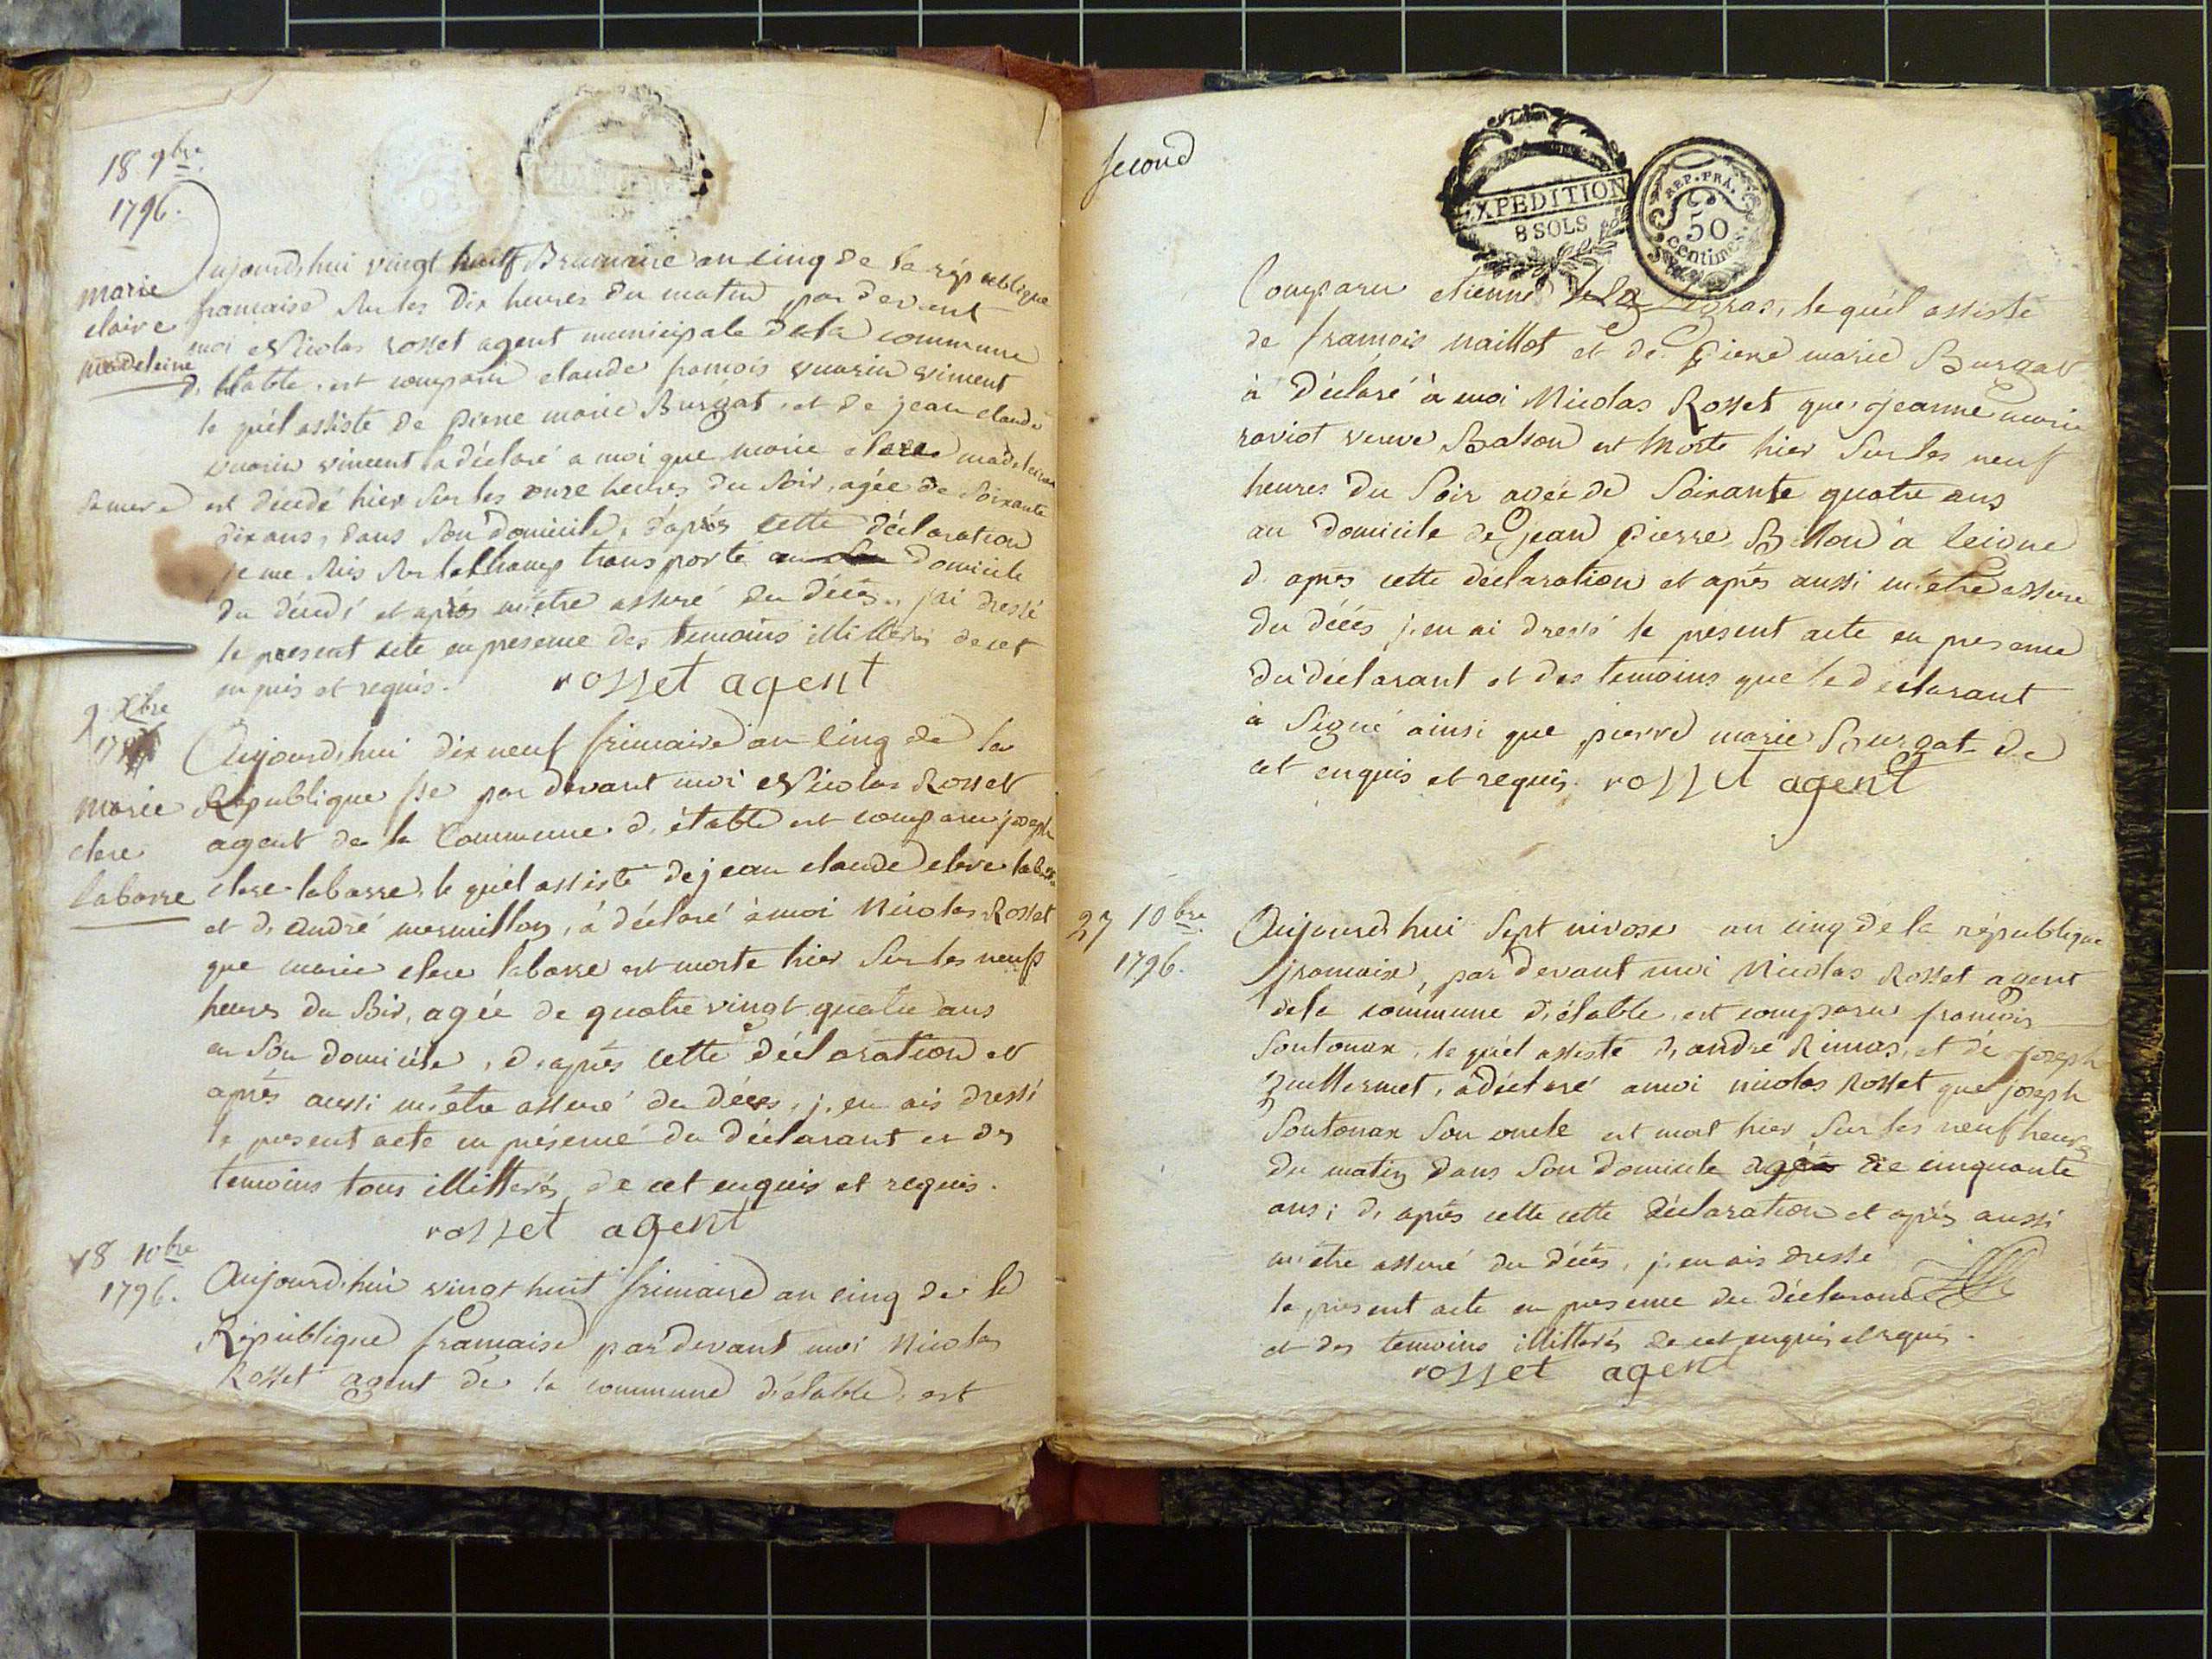 18 9bre
1796.
marie
claire
madeleine
aujourd,hui vingt huit Brumaire an cinq de la république
francaise sur les dix heures du matin par devant
moi Nicolas rosset agent municipale de la commune
d, étable, est comparu claude francois vuarin vincent
le quél assisté de pierre marie Burgat, et de jean claude
vuarin vincent a déclaré a moi que marie madeleine
sa mere est décédé hier sur les onze heures du soir, agée de soixante
dix ans, dans son domicile, d'après cette déclaration
je me suis sur le champ transporté domicile
du décédé et après m'etre assuré du décès, j'ai dressé
le present acte en presence des temoins illitterés de cet
enquis et requis. rosset agent
9 Xbre
Aujourd,hui dix neuf frimaire an cinq de la
marie
clere
labarre
République fse par devant moi Nicolas Rosset
agent de la Commune d, étable est comparu joseph
clere labarre, le quél assisté de jean claude clere labarre
et d, andré mermillon, à déclaré à moi Nicolas Rosset
que marie clere labarre est morte hier sur les neufs
heures du soir, agée de quatre vingt quatre ans
en son domicile, d, après cette déclaration et
après aussi m,être assuré du décès, j, en ais dressé
le present acte en présence du déclarant et des
temoins tous illitterés, de cet enquis et requis.
rosset agent
18 10bre
1796.
Aujourd,hui vingt huit frimaire an cinq de la
République francaise par devant moi Nicolas
Rosset agent de la commune d'étable, est
second
EXPEDITION
8 SOLS
REP. FRA.
50
centimes.
Comparu etienne gras, le quél assisté
de francois naillot et de pierre marie Burgat
à déclaré à moi Nicolas Rosset que jeanne marie
raviot veuve Balson est morte hier sur les neuf
heures du soir agée de soixante quatre ans
au domicile de jean pierre Billon à leigne
d, après cette déclaration et après aussi m'etre assure
du décés, j, en ai dressé le présent acte en presence
du déclarant et des temoins que le déclarant
à signé ainsi que pierre marie Burgat de
cet enquis et requis. rosset agent
27 10bre
1796.
Aujourd,hui sept nivose an cinq de la république
francaise, par devant moi Nicolas Rosset agent
de la commune d, étable, est comparu francois
soutonax, le quél assisté d, andré Rimas, et de joseph
guillermet, à déclaré a moi nicolas Rosset que joseph
soutonax son oncle est mort hier sur les neuf heures
du matin dans son domicile agée de cinquante
ans; d, après cette cette déclaration et après aussi
m'etre assuré du décès, j, en ais dressé
le présent acte en presence du déclarant
et des temoins illitterés de cet enquis et requis.
rosset agent